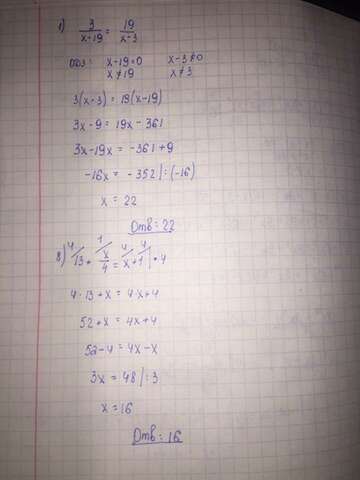 1) 3/(x-19) = 19/(x-3)
ОДЗ: x-19≠0 x-3≠0
x≠19 x≠3
3(x-3) = 19(x-19)
3x-9 = 19x-361
3x-19x = -361+9
-16x = -352 |:(-16)
x = 22
Отв: 22
8) 4/ 13 + 1/ x/4 = 4/ x + 4/ 1 | • 4
4·13+x = 4·x+4
52+x = 4x+4
52-4 = 4x-x
3x = 48 |:3
x=16
Отв: 16